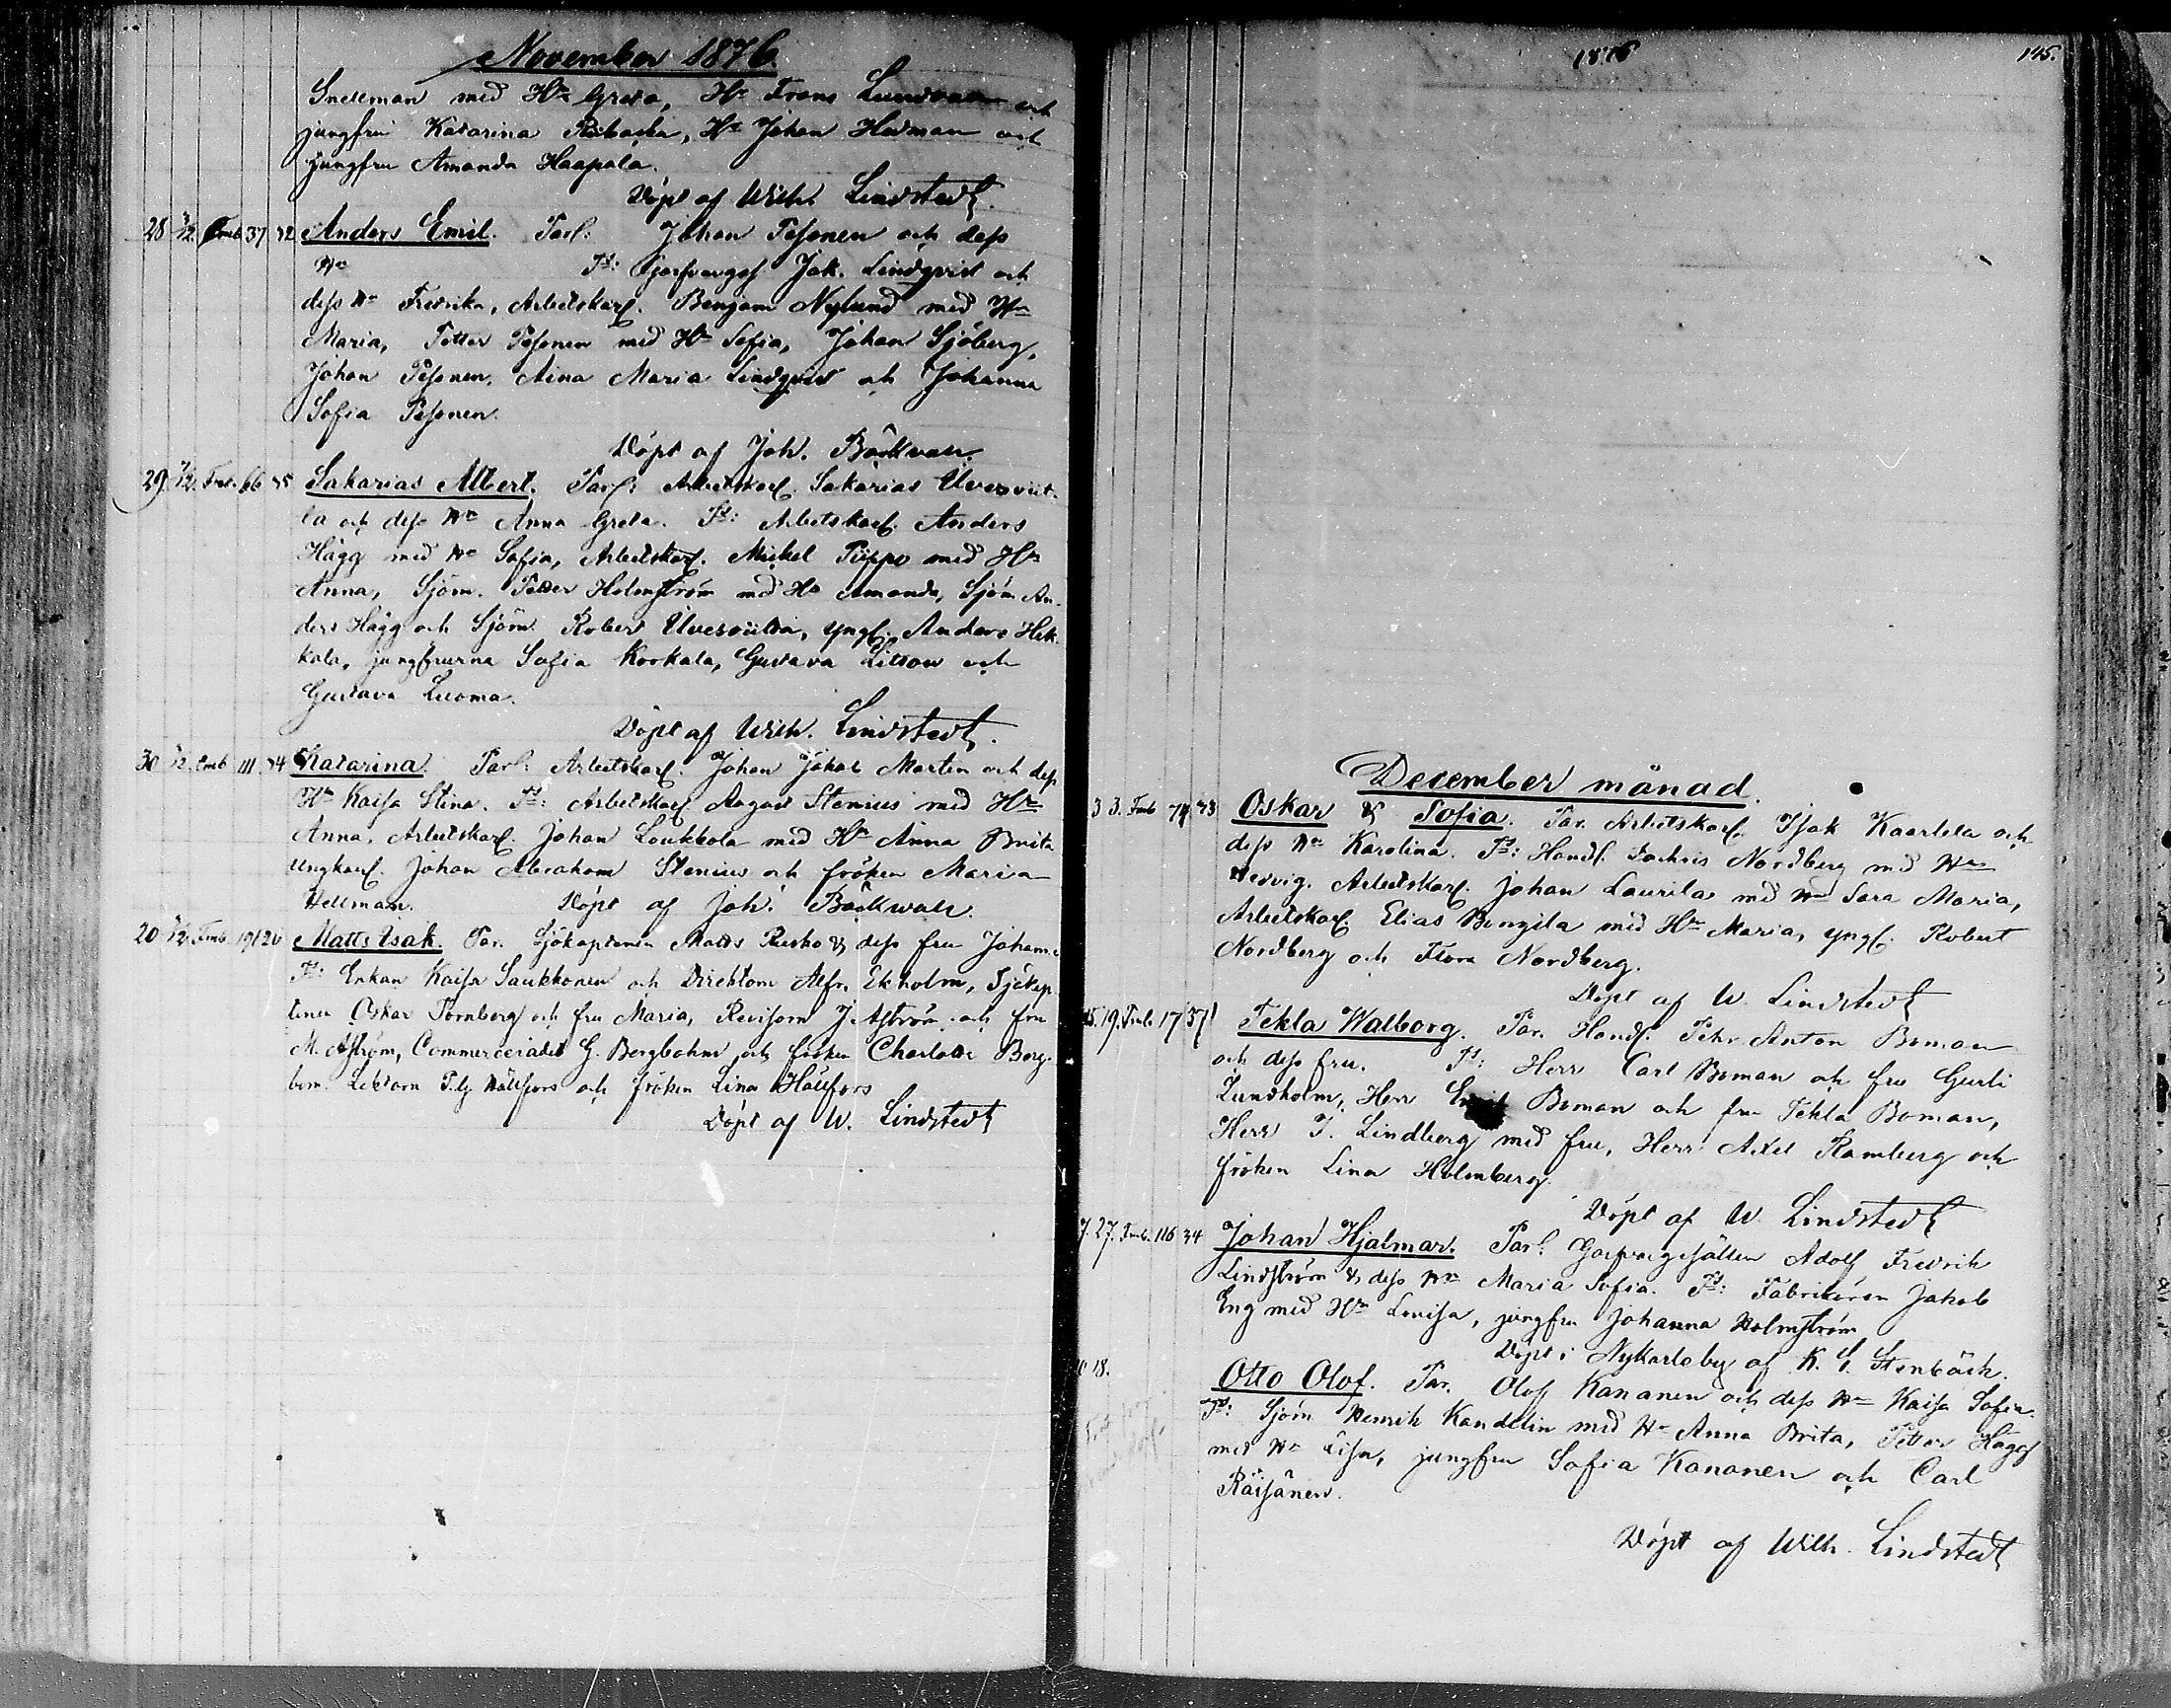 November 1876.
Snellman med Hu Greta, Hr Frans Lund och
jungfru Katarina, Hr Johan Hedman och
jungfru Amanda Haapala.
Döpt af Wilh. Lindstedt.
28 Fmb 37 32 Anders Emil. Par: Johan Pesonen och dess
Hu Ts: Garfvareges Jak. Lindqvist och
dess Hu Fredrika, Arbetskarl. Benjam Nylund med Hu
Maria, Petter Pesonen med Hu Sofia, Johan Sjöberg,
Johan Pesonen, Aina Maria Lindqvist och Johanna
Sofia Pesonen.
Döpt af Joh. Bäckvall.
29 Fmb. 66 35 Sakarias Albert. Par: Arbetskarl. Sakarias
la och dess Hu Anna Greta. Ts: Arbetskarl. Anders
Hägg med Hu Sofia, Arbetskarl. Mickel Piippo med Hu
Anna, Sjöm. Petter Holmström med Hu Amanda, Sjöm. An-
ders Hägg och Sjöm. Robert, yngl. Anders Hek-
kala, jungfrurna Sofia Korkala, Gustava och
Gustava Luoma.
Döpt af Wilh. Lindstedt.
30 Fmb 111 34 Katarina. Par: Arbetskarl. Johan Jakob Marten och dess
Hu Kaisa Stina. Ts: Arbetskarl August Stenius med Hu
Anna, Arbetskarl. Johan Loukkola med Hu Anna Brita
ungkarl. Johan Abraham Stenius och fröken Maria
Hellman. Döpt af Joh. Bäckwall.
20 Fmb. 19 26 Matts Isak. Par. Sjökaptenen Matts Rusko & dess fru Johanna
Ts: Enkan Kaisa Saukkonen och Direktorn Alfr. Ekholm, Sjökap-
tenen Oskar Törnberg och fru Maria, Revisorn J. Aström och fru
M. Aström, Commercerådet G. Bergbohm och fröken Charlotte Berg-
bom. Lektorn Hällfors och fröken Lina Hällfors
Döpt af W. Lindstedt
1876
145.
December månad.
3 3. Fmb 74 33 Oskar & Sofia. Par. Arbetskarl. Isak Kaarlela och
dess Hu Karolina. Ts: Handl. Nordberg med Hu
Hedvig. Arbetskarl. Johan Laurila med Hu Sara Maria,
Arbetskarl. Elias med Hu Maria, yngl. Robert
Nordberg och Flora Nordberg.
Döpt af W. Lindstedt
15. 19. Fmb. 17 37 Tekla Walborg. Par. Handl. Pehr Anton Boman
och dess fru. Ts: Herr Carl Boman och fru Gurli
Lundholm, Herr Emil Boman och fru Tekla Boman,
Herr J. Lindberg med fru, Herr Axel Ramberg och
fröken Lina Holmberg.
Döpt af W. Lindstedt
7. 27. Fmb. 116 34 Johan Hjalmar. Par: Garfvaregesällen Adolf Fredrik
Lindström & dess Hu Maria Sofia. Ts: Fabrikören Jakob
Eng med Hu Lovisa, jungfru Johanna Holmström
Döpt i Nykarleby af K. S. Stenbäck.
18. Otto Olof. Par. Olof Kananen och dess Hu Kaisa Sofia.
Ts: Sjöm Henrik Kandelin med Hu Anna Brita, Petter Hägg
med Hu Lisa, jungfru Sofia Kananen och Carl
Räisänen.
Döpt af Wilh. Lindstedt